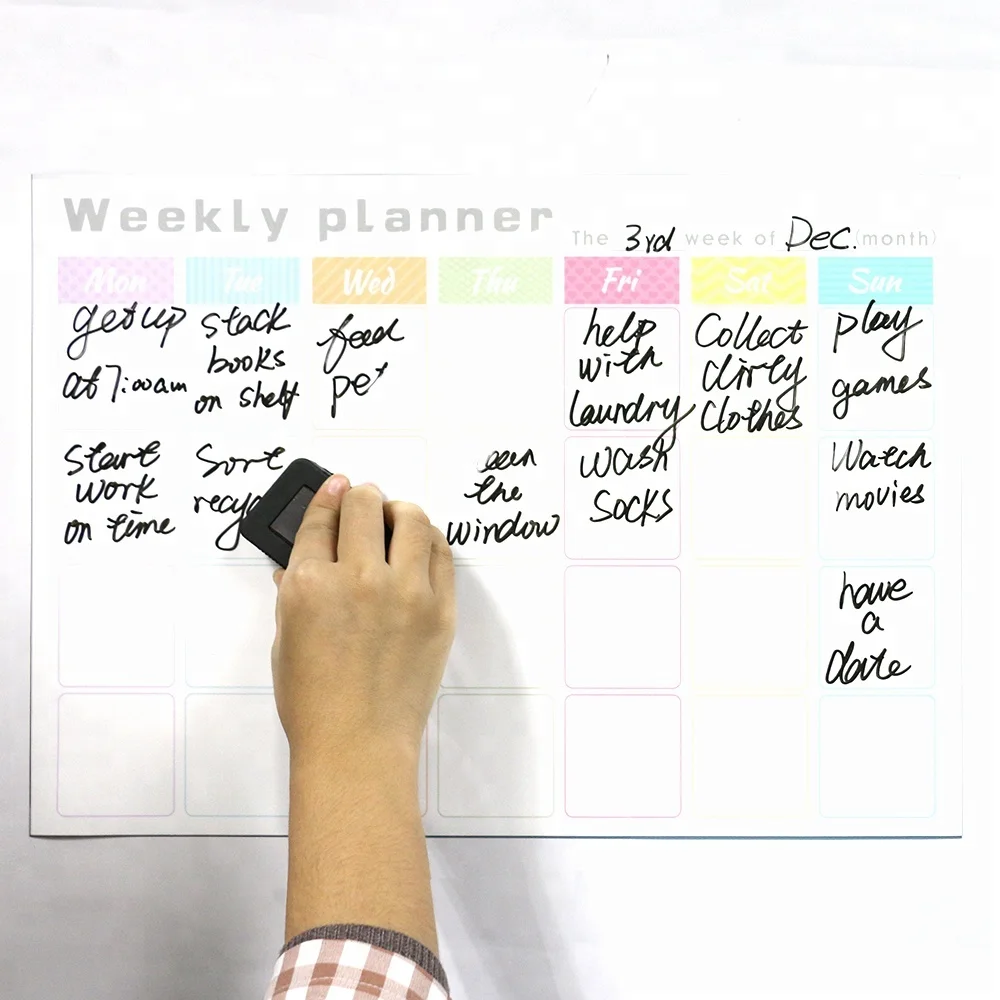 Weekly planner
The 3rd week of Dec. (month)
Mon Tue Wed Thu Fri Sat Sun
get up
at 7:00am
stack
books
on shelf
feed
pet
help
with
laundry
Collect
dirty
Clothes
play
games
start
work
on time
Sort
the
window
wash
socks
Watch
movies
have
a
date